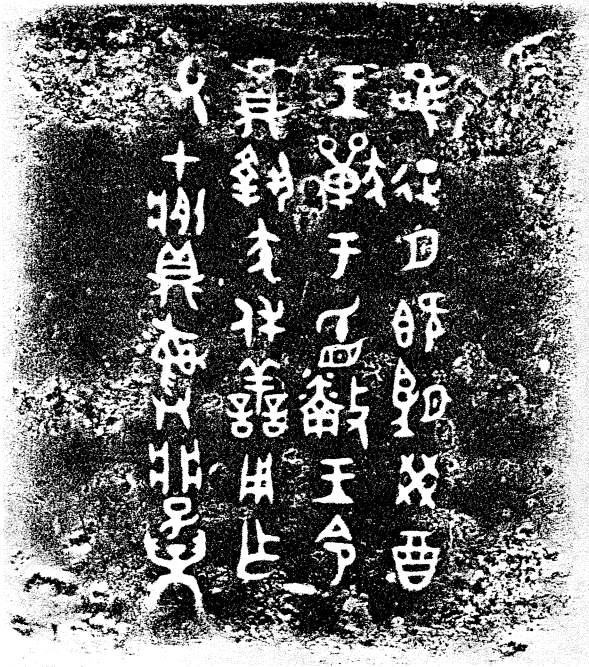 唯征月既望癸酉
王獸于眂王令
員執犬休善用乍
父甲彝